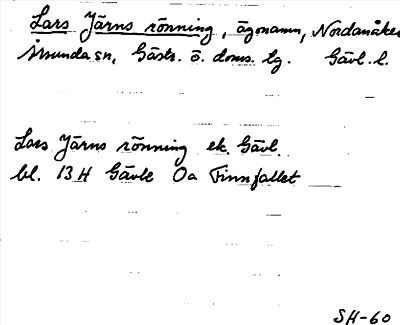 Lars Järns rönning, ägonamn, Nordanåker
Årsunda sn, Gästr. ö. doms. lg. Gävl. l.
Lars Järns rönning ek. Gävl.
bl. 13 H Gävle 0a Finnfallet
SH-60